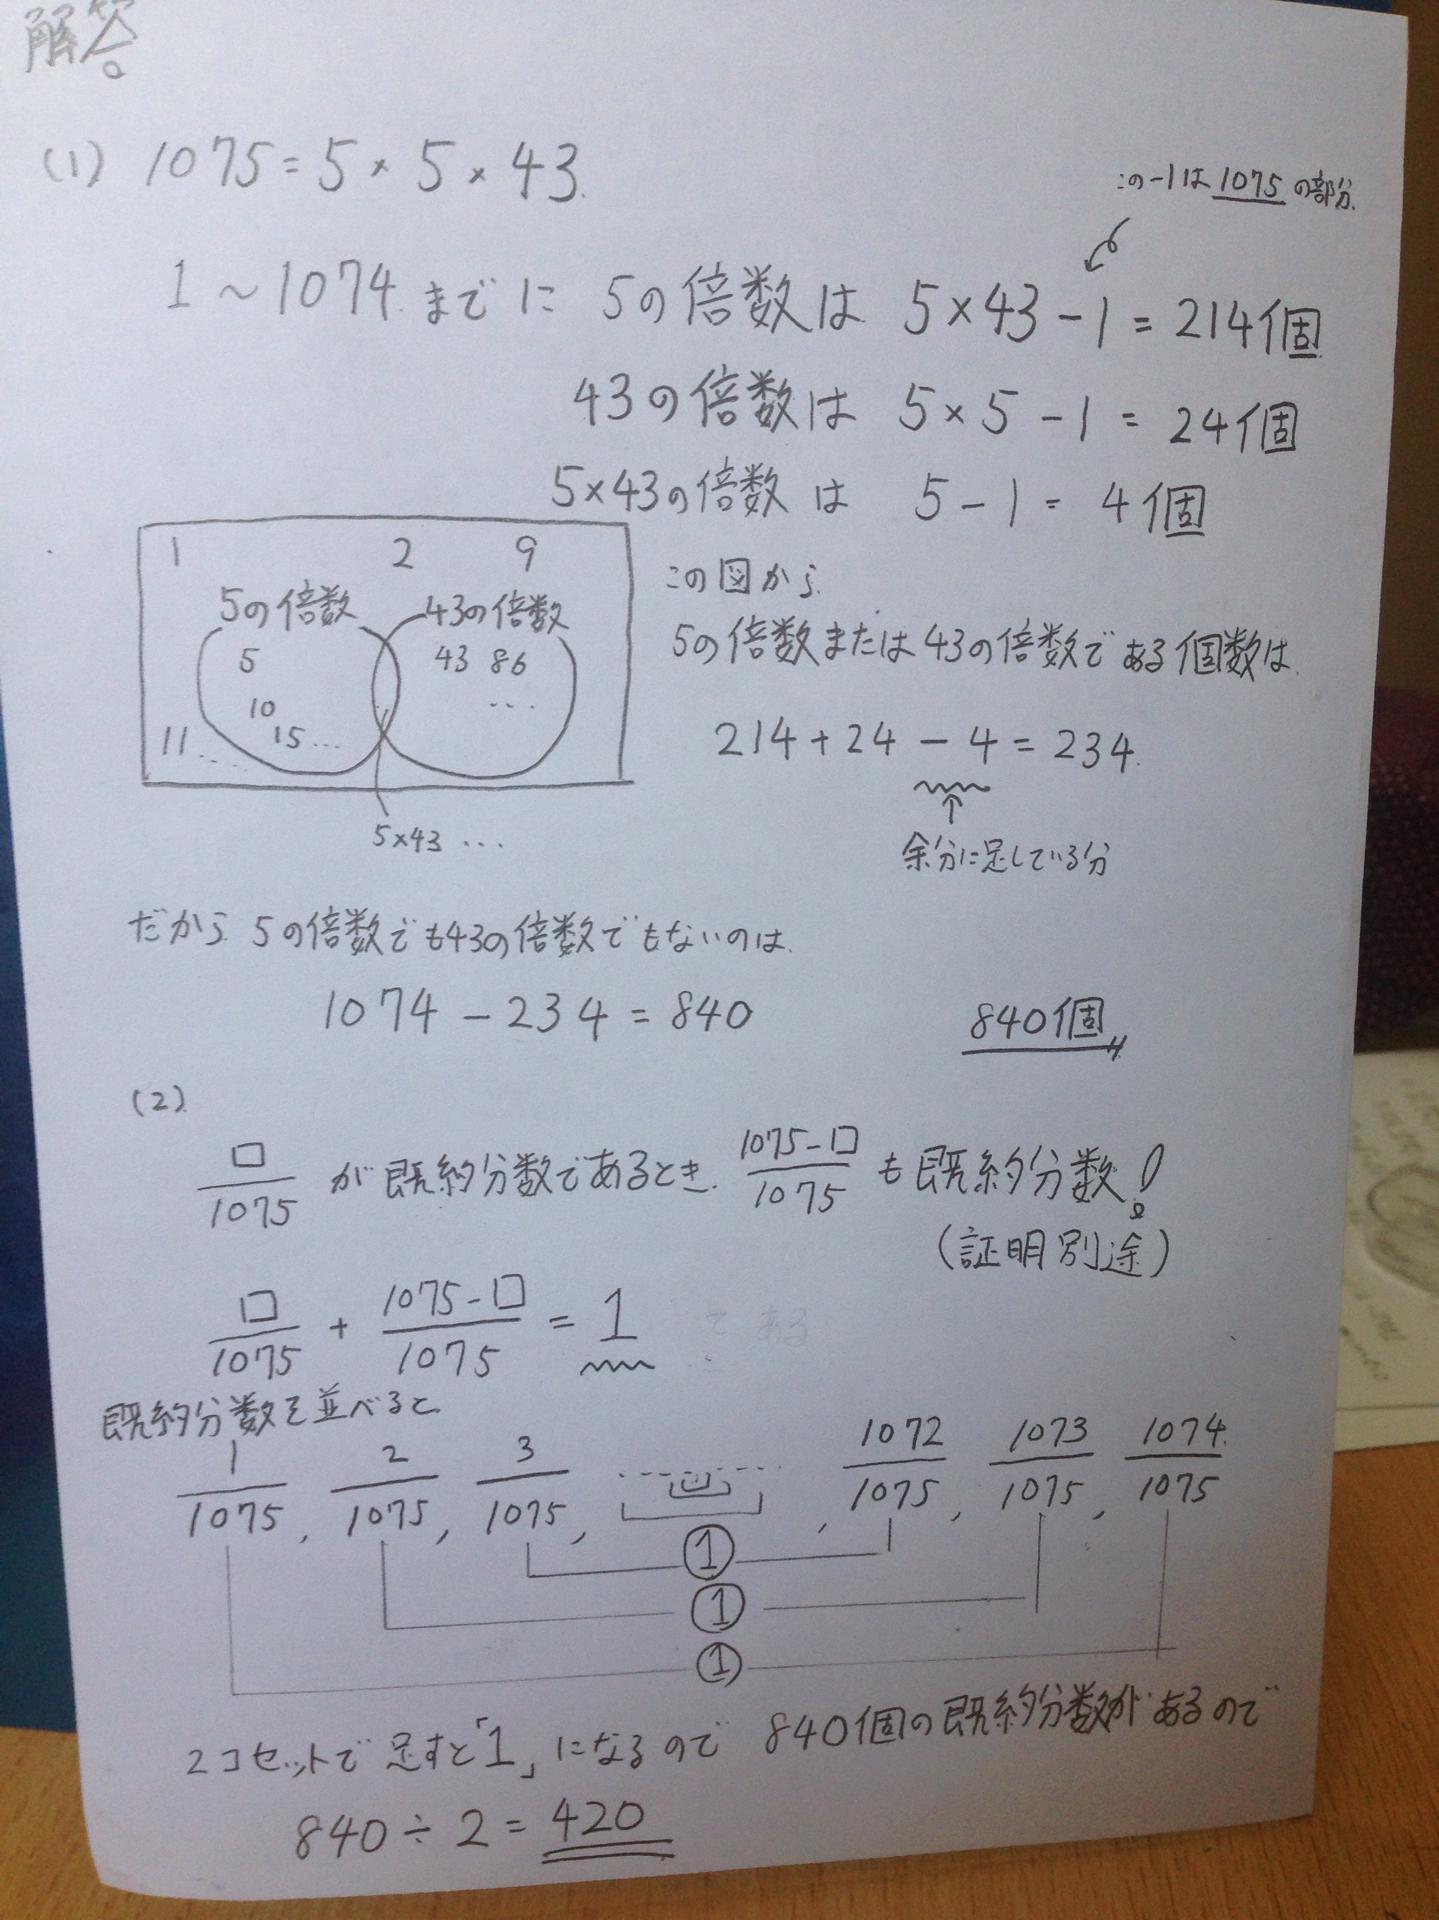 解答
(1) 1075 = 5 × 5 × 43.
この-1は1075の部分.
1～1074までに 5の倍数は 5×43-1 = 214個
43の倍数は 5×5-1 = 24個
5×43の倍数は 5-1 = 4個
1 2 9
5の倍数 43の倍数
5 43 86
10 ...
11..... 15...
5×43 ...
この図から
5の倍数または43の倍数である個数は
214+24-4=234
余分に足している分
だから 5の倍数でも43の倍数でもないのは
1074-234=840 840個
(2)
□/1075 が既約分数であるとき. (1075-□)/1075 も既約分数!
(証明別途)
□/1075 + (1075-□)/1075 = 1 である
既約分数を並べると
1/1075, 2/1075, 3/1075, ......, 1072/1075, 1073/1075, 1074/1075
①
①
①
2コセットで足すと「1」になるので 840個の既約分数があるので
840÷2=420